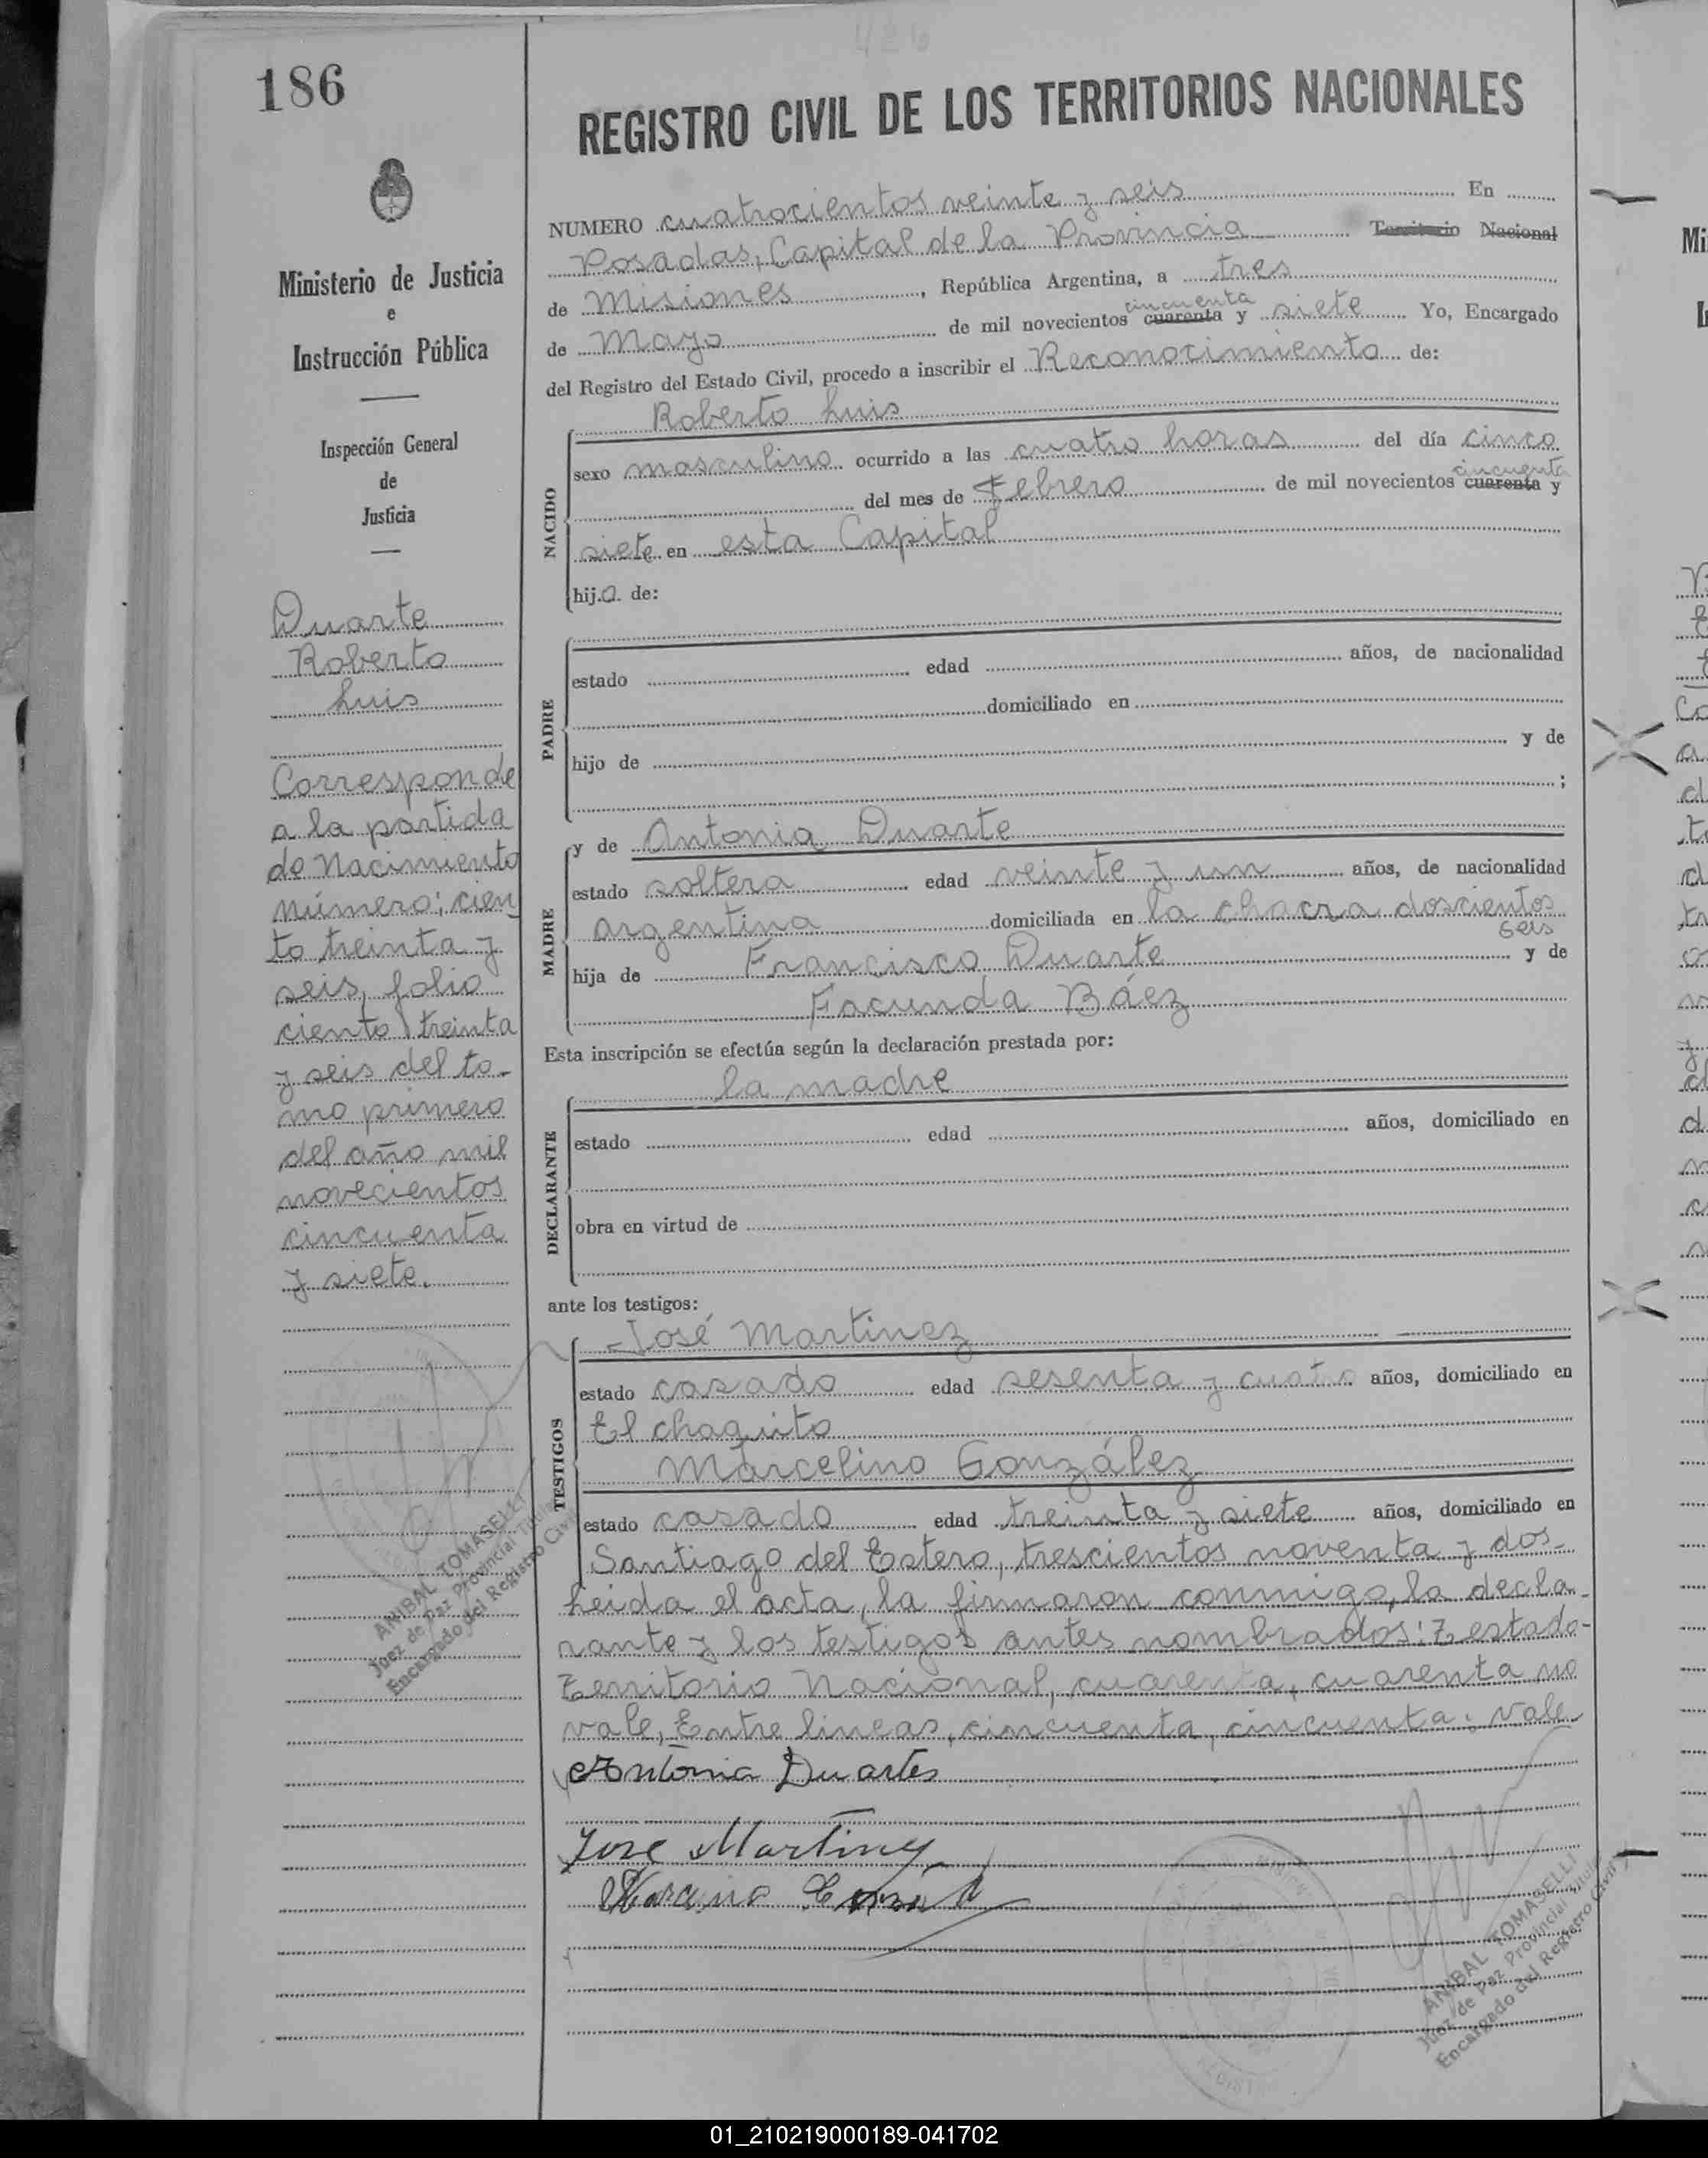 426
186
REGISTRO CIVIL DE LOS TERRITORIOS NACIONALES
Ministerio de Justicia
e
Instrucción Pública
Inspección General
de
Justicia
Duarte
Roberto
Luis
Corresponde
a la partida
de Nacimiento
número; cien
to treinta y
seis, folio
ciento treinta
y seis del to-
mo primero
del año mil
novecientos
cincuenta
y siete.
ANIBAL TOMASELLI
Juez de Paz Provincial Titular
Encargado del Registro Civil
NUMERO cuatrocientos veinte y seis En
Posadas, Capital de la Provincia Territorio Nacional
de Misiones, República Argentina, a tres
cincuenta
de Mayo de mil novecientos cuarenta y siete Yo, Encargado
del Registro del Estado Civil, procedo a inscribir el Reconocimiento de:
Roberto Luis
NACIDO
sexo masculino ocurrido a las cuatro horas del día cinco
cincuenta
del mes de Febrero de mil novecientos cuarenta y
siete en esta Capital
hijo de:
PADRE
estado edad años, de nacionalidad
domiciliado en
hijo de y de
;
MADRE
y de Antonia Duarte
estado soltera edad veinte y un años, de nacionalidad
argentina domiciliada en la chacra doscientos
seis
hija de Francisco Duarte y de
Facunda Báez
Esta inscripción se efectúa según la declaración prestada por:
la madre
DECLARANTE
estado edad años, domiciliado en
obra en virtud de
ante los testigos:
TESTIGOS
José Martinez
estado casado edad sesenta y cuatro años, domiciliado en
El chaquito
Marcelino González
estado casado edad treinta y siete años, domiciliado en
Santiago del Estero, trescientos noventa y dos-
Leida el acta, la firmaron conmigo, la decla-
rante y los testigos antes nombrados: Testado-
Territorio Nacional, cuarenta, cuarenta no
vale, Entre lineas, cincuenta, cincuenta: Vale
Antonia Duartes
Jose Martinez
ANIBAL TOMASELLI
Juez de Paz Provincial Titular
Encargado del Registro Civil
01_210219000189-041702